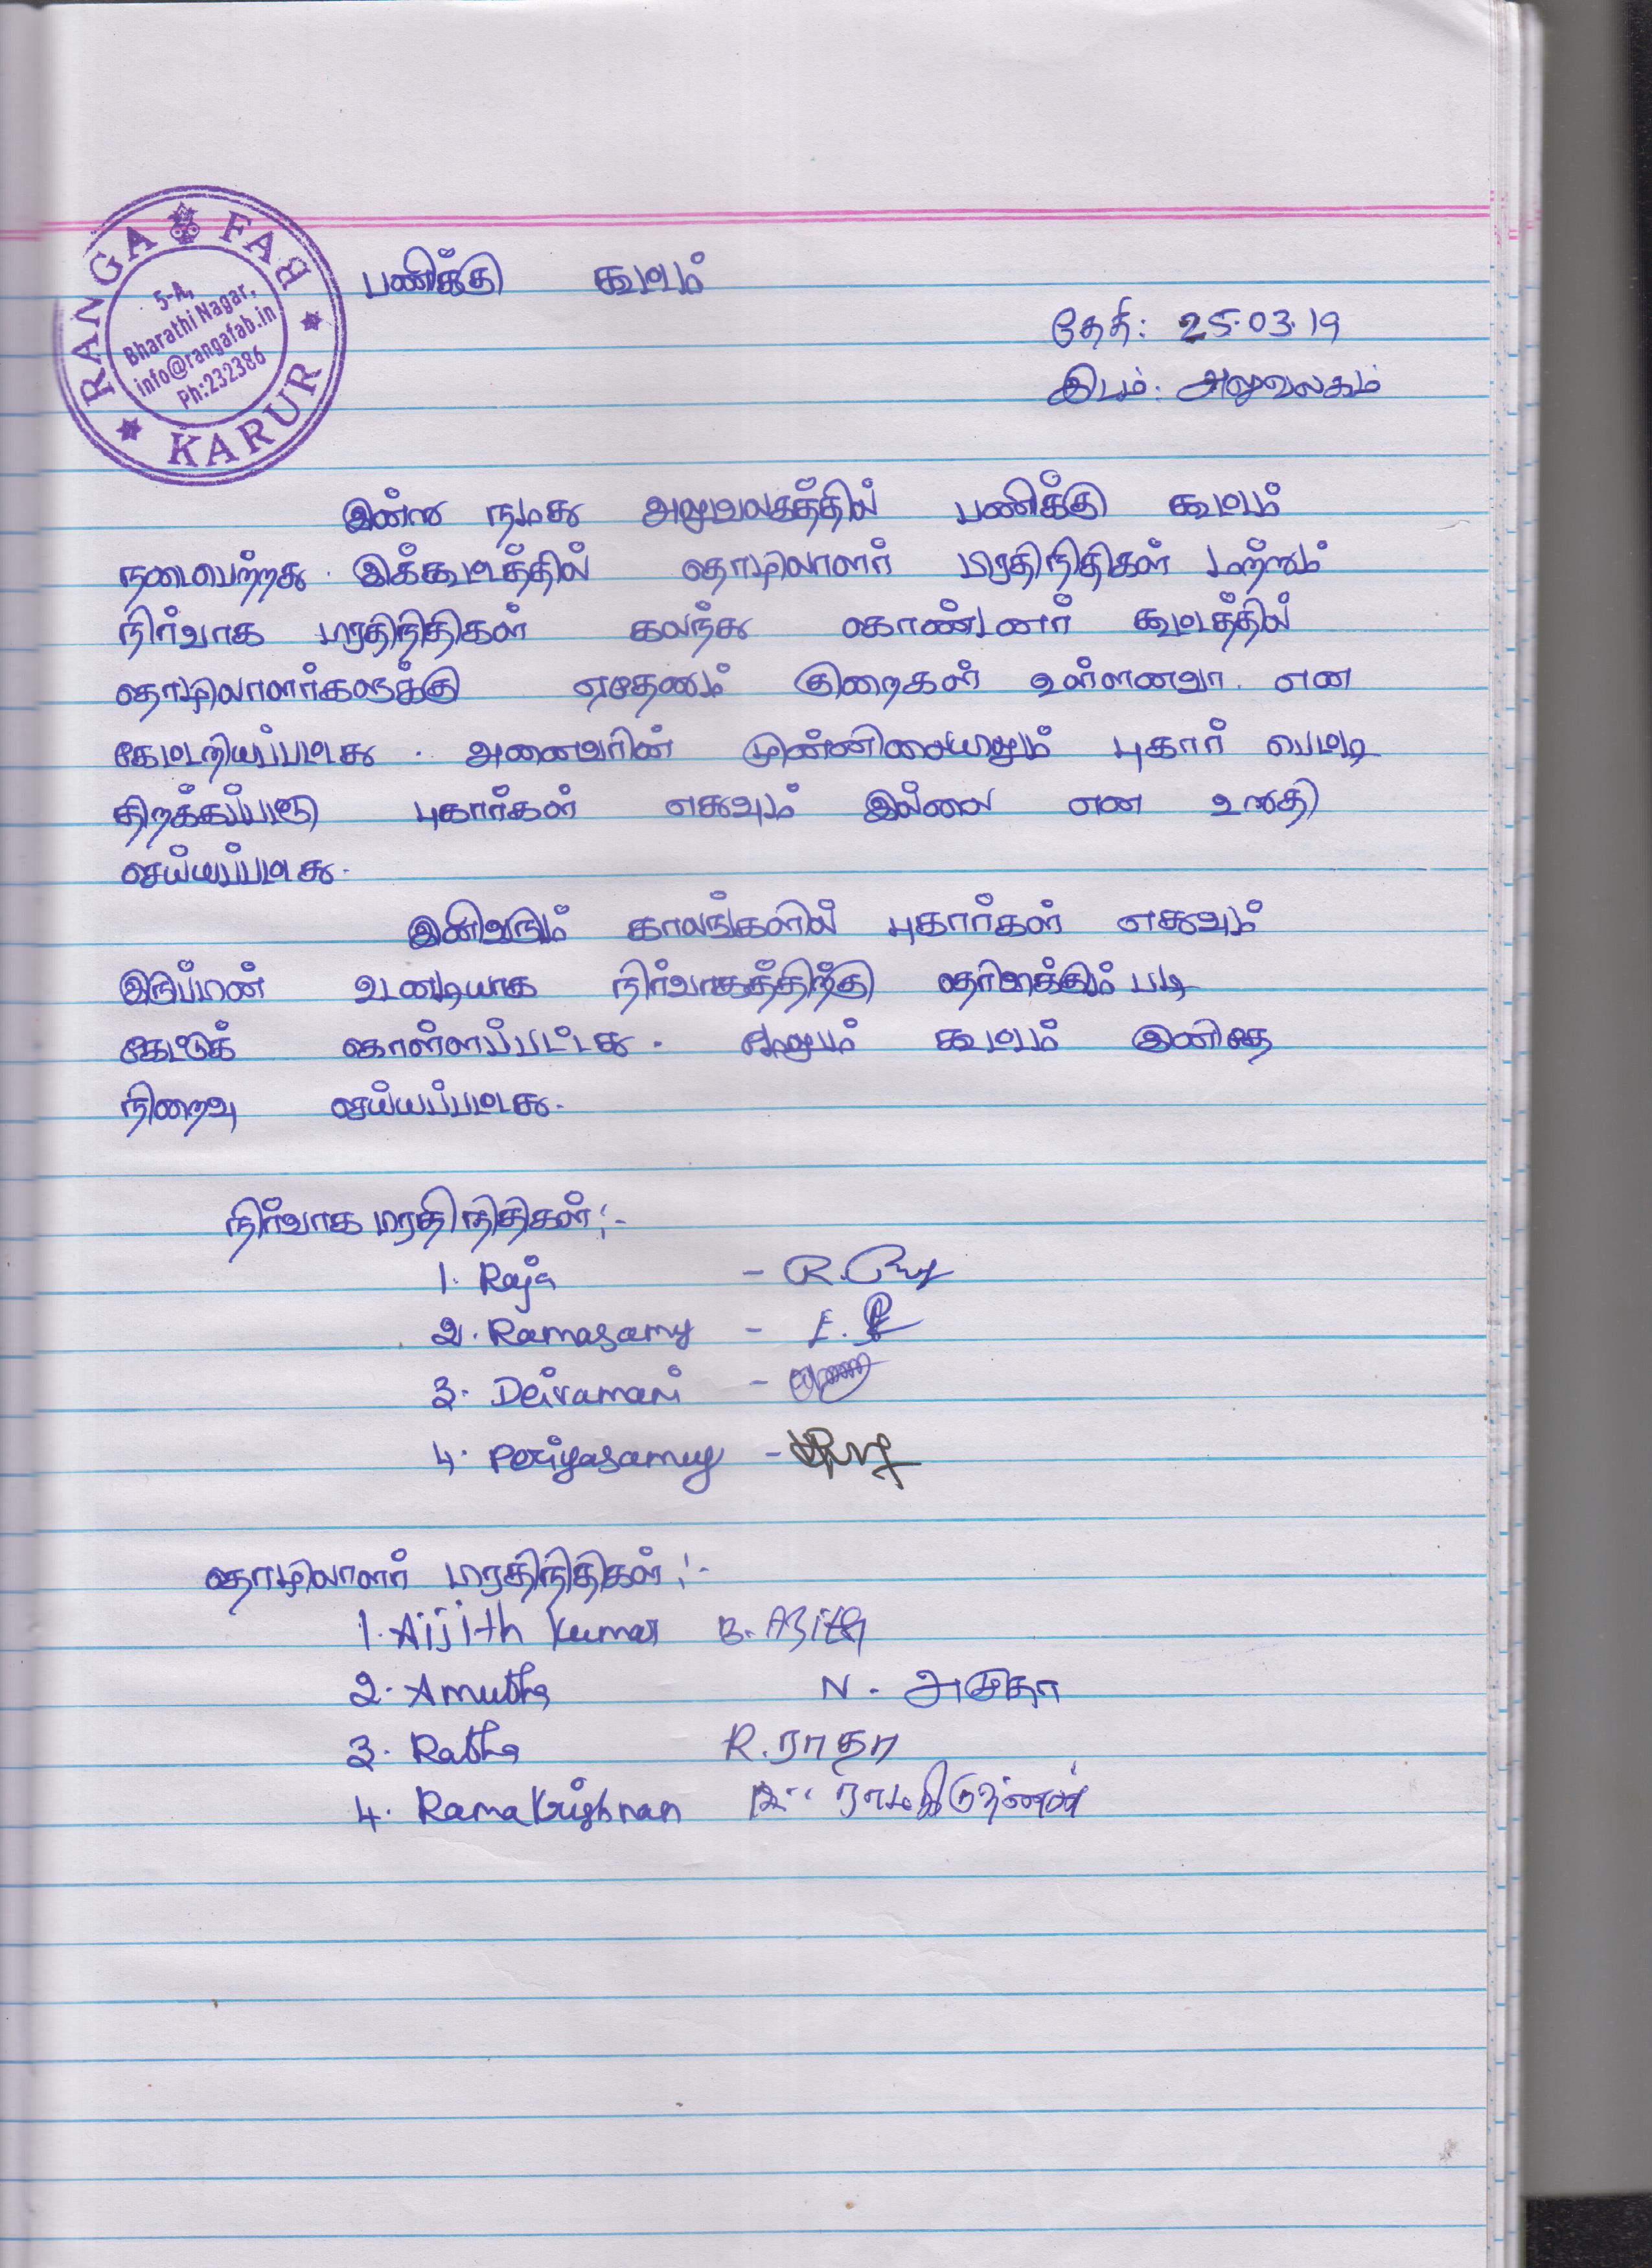 RANGA FAB
KARUR
5-A,
Bharathi Nagar,
info@rangafab.in
Ph:232386
பணிக்குழு கூட்டம்
தேதி: 25.03.19
இடம்: அலுவலகம்
இன்று நமது அலுவலகத்தில் பணிக்குழு கூட்டம்
நடைபெற்றது. இக்கூட்டத்தில் தொழிலாளர் பிரதிநிதிகள் மற்றும்
நிர்வாக பிரதிநிதிகள் கலந்து கொண்டனர் கூட்டத்தில்
தொழிலாளர்களுக்கு ஏதேனும் குறைகள் உள்ளனவா. என
கேட்டறியப்பட்டது. அனைவரின் முன்னிலையிலும் புகார் பெட்டி
திறக்கப்பட்டு புகார்கள் எதுவும் இல்லை என உறுதி
செய்யப்பட்டது.
இனிவரும் காலங்களில் புகார்கள் எதுவும்
இருப்பின் உடனடியாக நிர்வாகத்திற்கு தெரிவிக்கும் படி
கேட்டுக் கொள்ளப்பட்டது. மேலும் கூட்டம் இனிதே
நிறைவு செய்யப்பட்டது.
நிர்வாக பிரதிநிதிகள்:-
1. Raja -
2. Ramasamy -
3. Deivamani -
4. Periyasamy -
தொழிலாளர் பிரதிநிதிகள்:-
1. Aijith Kumar B. Ajith
2. Amutha N. அமுதா
3. Ratha R. ராதா
4. Rama Krishnan ராமகிருஷ்ணன்